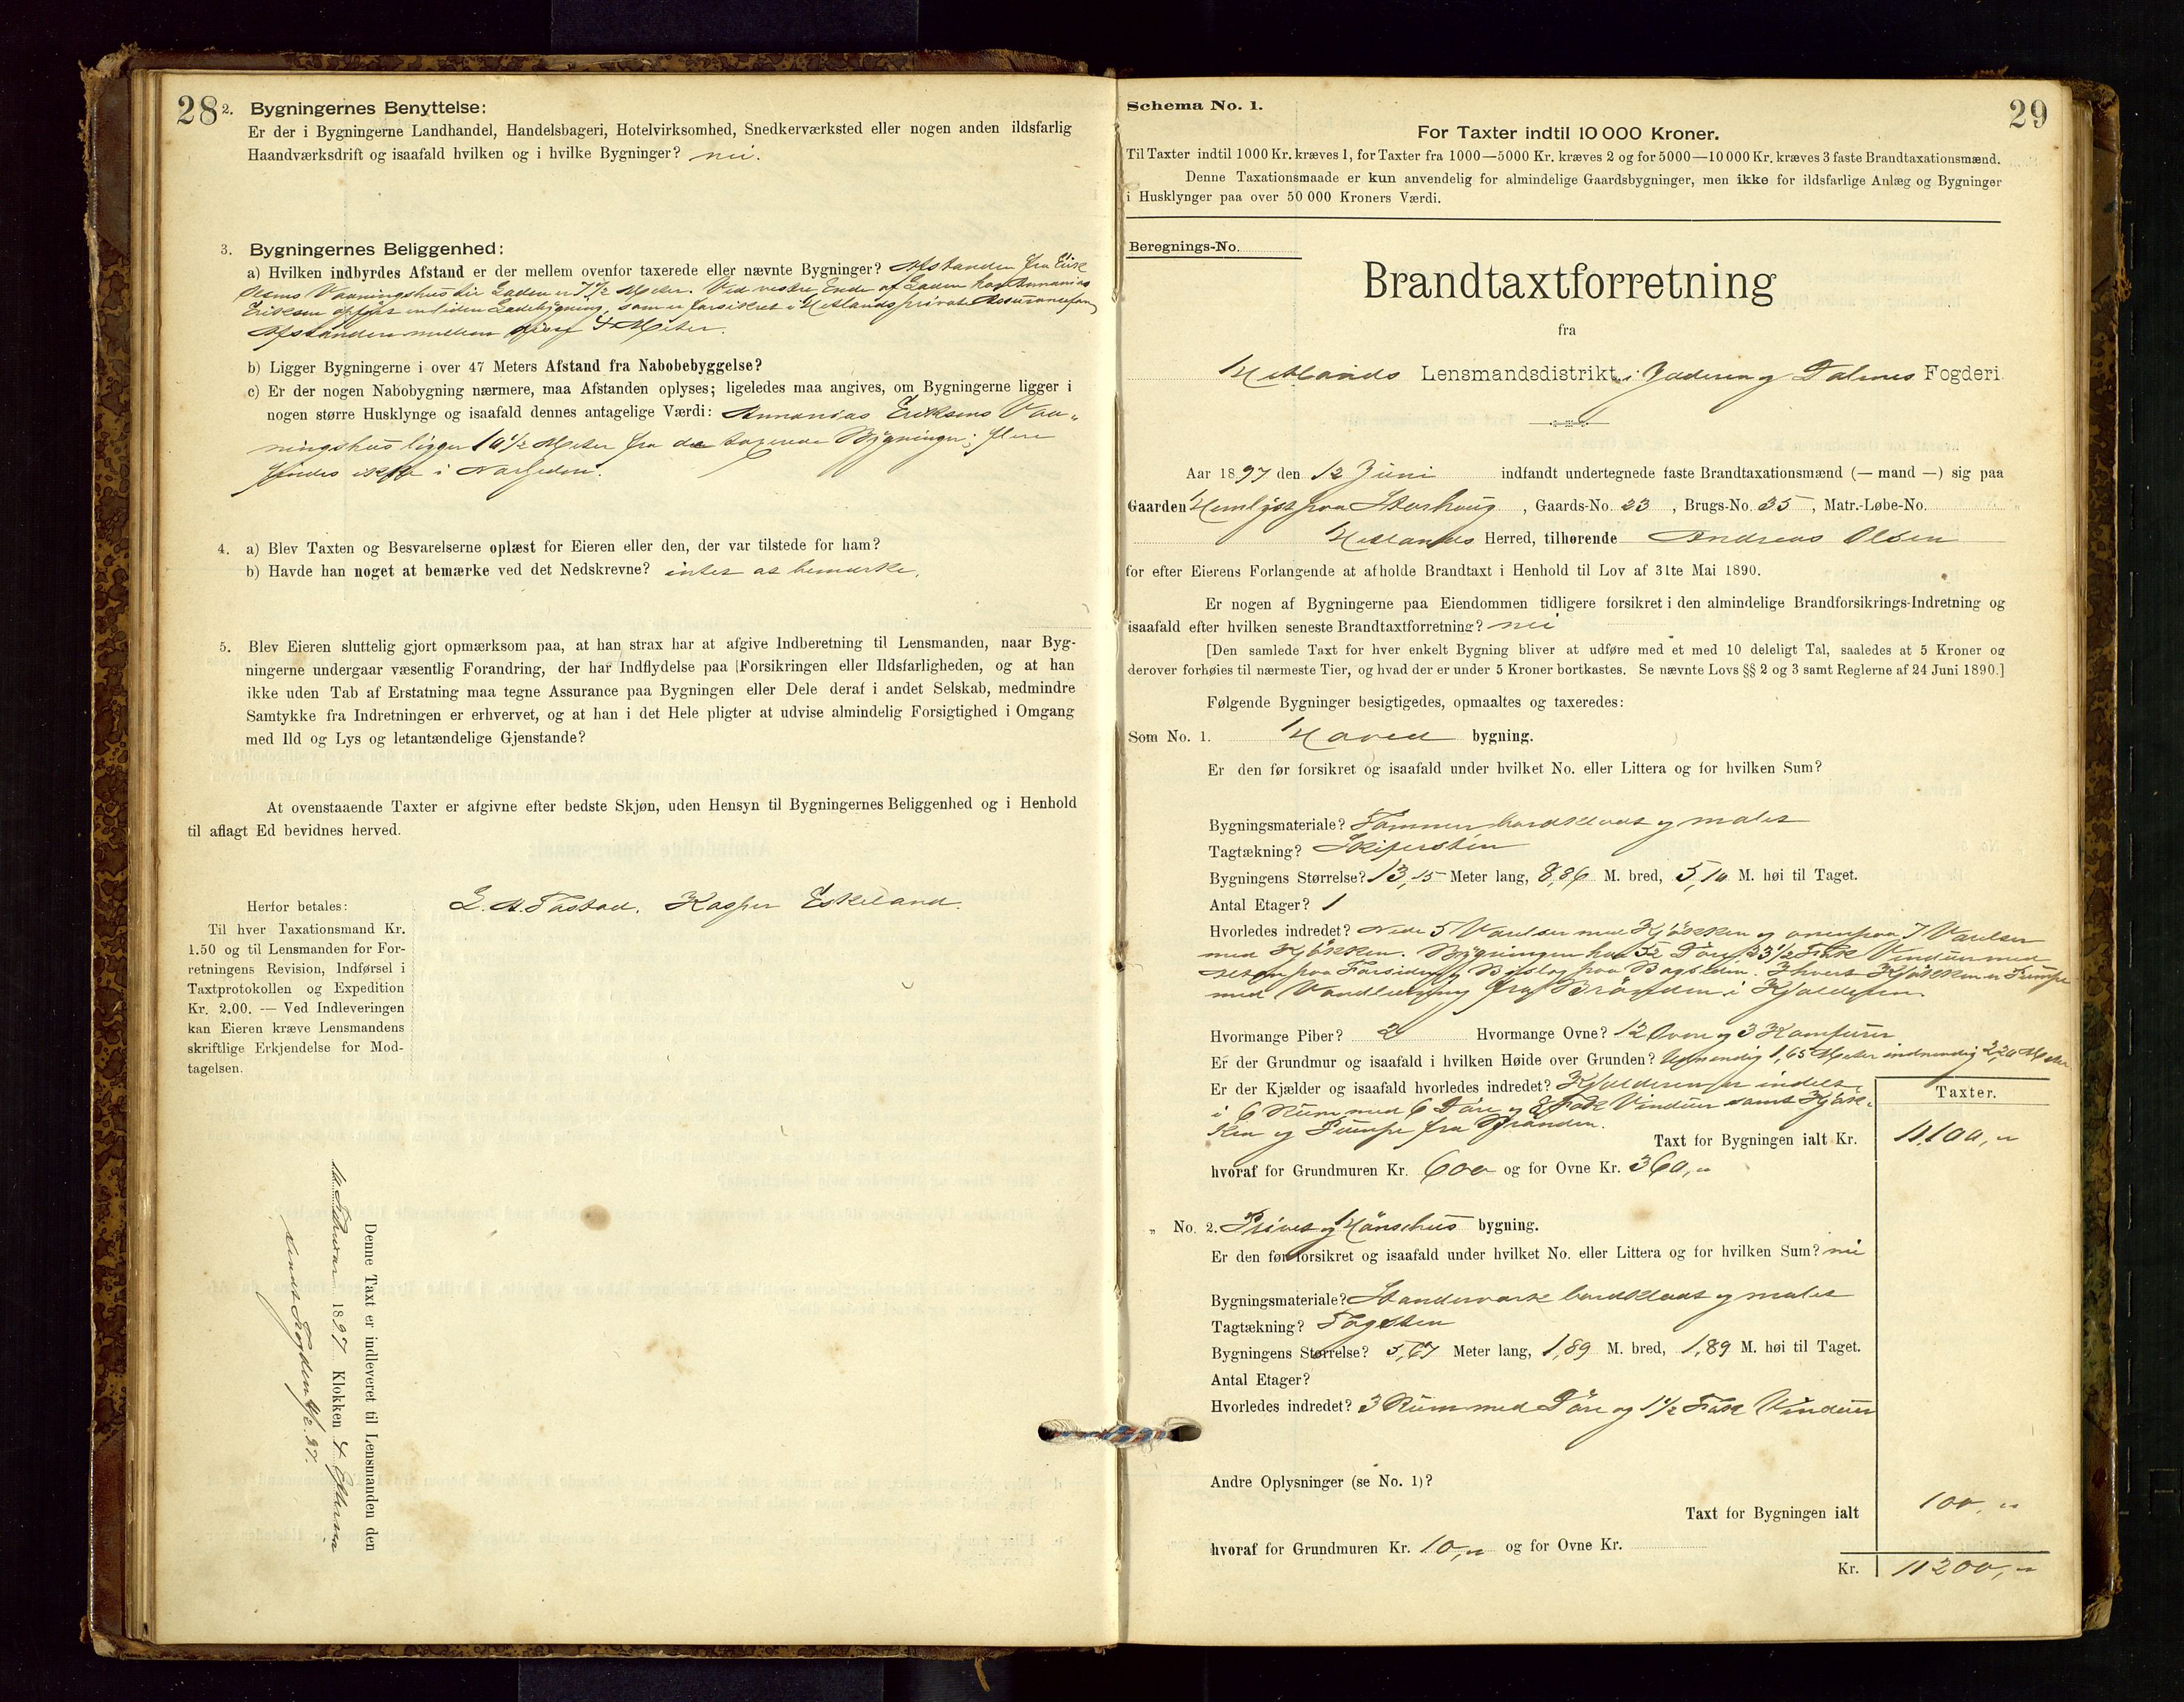 28
2. Bygningernes Benyttelse:
Er der i Bygningerne Landhandel, Handelsbageri, Hotelvirksomhed, Snedkerværksted eller nogen anden ildsfarlig
Haandværksdrift og isaafald hvilken og i hvilke Bygninger? nei.
3. Bygningernes Beliggenhed:
a) Hvilken indbyrdes Afstand er der mellem ovenfor taxerede eller nævnte Bygninger? Afstanden fra Erik
Vaaningshus til Laden er 7 1/2 Meter. Ved vestre Ende af Laden har Annanias
Eriksen opført en liden Ladebygning, som er forsikret i Hetlands private
Afstanden mellem disse 4 Meter.
b) Ligger Bygningerne i over 47 Meters Afstand fra Nabobebyggelse?
c) Er der nogen Nabobygning nærmere, maa Afstanden oplyses; ligeledes maa angives, om Bygningerne ligger i
nogen større Husklynge og isaafald dennes antagelige Værdi: Annanias Eriksens Vaa-
ningshus ligger 10 1/2 Meter fra de taxerede Bygninger; flere
findes ikke i Nærheden.
4. a) Blev Taxten og Besvarelserne oplæst for Eieren eller den, der var tilstede for ham?
b) Havde han noget at bemærke ved det Nedskrevne? intet at bemærke.
5. Blev Eieren sluttelig gjort opmærksom paa, at han strax har at afgive Indberetning til Lensmanden, naar Byg-
ningerne undergaar væsentlig Forandring, der har Indflydelse paa Forsikringen eller Ildsfarligheden, og at han
ikke uden Tab af Erstatning maa tegne Assurance paa Bygningen eller Dele deraf i andet Selskab, medmindre
Samtykke fra Indretningen er erhvervet, og at han i det Hele pligter at udvise almindelig Forsigtighed i Omgang
med Ild og Lys og letantændelige Gjenstande?
At ovenstaaende Taxter er afgivne efter bedste Skjøn, uden Hensyn til Bygningernes Beliggenhed og i Henhold
til aflagt Ed bevidnes herved.
E. A. Tastad. Kasper Eskeland.
Herfor betales:
Til hver Taxationsmand Kr.
1.50 og til Lensmanden for For-
retningens Revision, Indførsel i
Taxtprotokollen og Expedition
Kr. 2.00. — Ved Indleveringen
kan Eieren kræve Lensmandens
skriftlige Erkjendelse for Mod-
tagelsen.
Denne Taxt er indleveret til Lensmanden den
Februar 1897 Klokken 4 Efterm
Sendt Fogden 97.
29
Schema No. 1.
For Taxter indtil 10 000 Kroner.
Til Taxter indtil 1000 Kr. kræves 1, for Taxter fra 1000—5000 Kr. kræves 2 og for 5000—10 000 Kr. kræves 3 faste Brandtaxationsmænd.
Denne Taxationsmaade er kun anvendelig for almindelige Gaardsbygninger, men ikke for ildsfarlige Anlæg og Bygninger
i Husklynger paa over 50 000 Kroners Værdi.
Beregnings-No.
Brandtaxtforretning
fra
Hetlands Lensmandsdistrikt, i Jæderen og Dalernes Fogderi
Aar 1897 den 12 Juni indfandt undertegnede faste Brandtaxationsmænd (— mand —) sig paa
Gaarden Hemligst paa Storhoug, Gaards-No. 23, Brugs-No. 35, Matr.-Løbe-No.
Hetlands Herred, tilhørende Andreas Olsen
for efter Eierens Forlangende at afholde Brandtaxt i Henhold til Lov af 31te Mai 1890.
Er nogen af Bygningerne paa Eiendommen tidligere forsikret i den almindelige Brandforsikrings-Indretning og
isaafald efter hvilken seneste Brandtaxtforretning? nei
[Den samlede Taxt for hver enkelt Bygning bliver at udføre med et med 10 deleligt Tal, saaledes at 5 Kroner og
derover forhøies til nærmeste Tier, og hvad der er under 5 Kroner bortkastes. Se nævnte Lovs §§ 2 og 3 samt Reglerne af 24 Juni 1890.]
Følgende Bygninger besigtigedes, opmaaltes og taxeredes:
Som No. 1. Hoved bygning.
Er den før forsikret og isaafald under hvilket No. eller Littera og for hvilken Sum?
Bygningsmateriale? Tømmer bordklædt og malet
Tagtækning? Skifersten
Bygningens Størrelse? 13,15 Meter lang, 8,86 M. bred, 5,10 M. høi til Taget.
Antal Etager? 1
Hvorledes indredet? Nede 5 Værelser med Kjøkken og ovenpaa 7 Værelser
med Kjøkken. Bygningen har 52 Døre 23 1/2 Fak Vinduer med
paa Forsiden og Bislag paa Bagsiden. I hvert Kjøkken er Pumpe
med Vandledning fra Brønden i Kjælderen.
Hvormange Piber? 2 Hvormange Ovne? 12 Ovne og 3 Komfurer
Er der Grundmur og isaafald i hvilken Høide over Grunden? Udvendig 1,65 Meter indvendig 2,20 Meter
Er der Kjælder og isaafald hvorledes indredet? Kjælderen er indelt
i 6 Rum med 6 Døre og 8 Fak Vinduer samt Kjøk-
ken og Pumpe fra Brønden.
Taxter.
Taxt for Bygningen ialt Kr. 11,100,"
hvoraf for Grundmuren Kr. 600 og for Ovne Kr. 360,"
„ No. 2. Privet og Hønsehus bygning.
Er den før forsikret og isaafald under hvilket No. eller Littera og for hvilken Sum? nei
Bygningsmateriale? Standerværk bordklædt og malet
Tagtækning? Tagsten
Bygningens Størrelse? 5,67 Meter lang, 1,89 M. bred, 1,89 M. høi til Taget.
Antal Etager?
Hvorledes indredet? 3 Rum med Døre og 1 1/2 Fak Vinduer
Andre Oplysninger (se No. 1)?
Taxt for Bygningen ialt 100,"
hvoraf for Grundmuren Kr. 10,„ og for Ovne Kr.
Kr. 11200,"